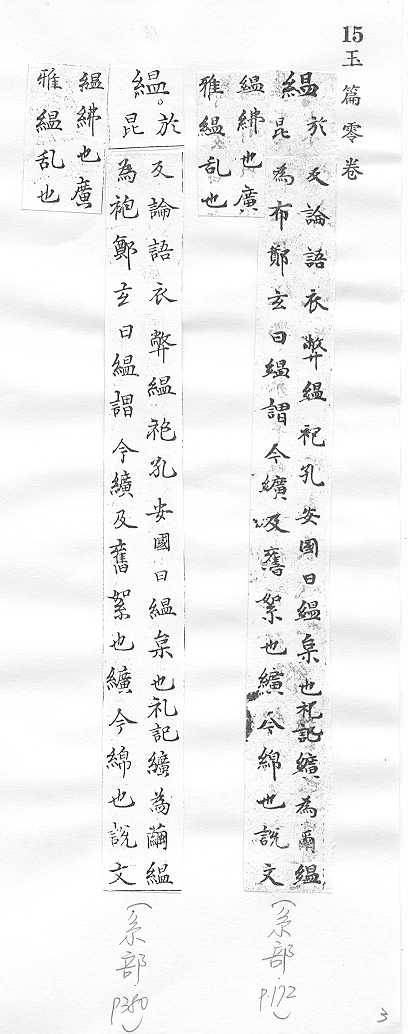 15玉篇零卷
緼於反論語衣弊緼袍孔安國曰緼枲也礼記纊為繭緼
昆為布鄭玄曰緼謂今纊及舊絮也纊今綿也說文
緼紼也廣
雅緼乱也
(糸部 P.172)
緼。於反論語衣弊緼袍孔安國曰緼枲也礼記纊為繭緼
昆為袍鄭玄曰緼謂今纊及舊絮也纊今綿也說文
緼紼也廣
雅緼乱也
(糸部 P380)
3